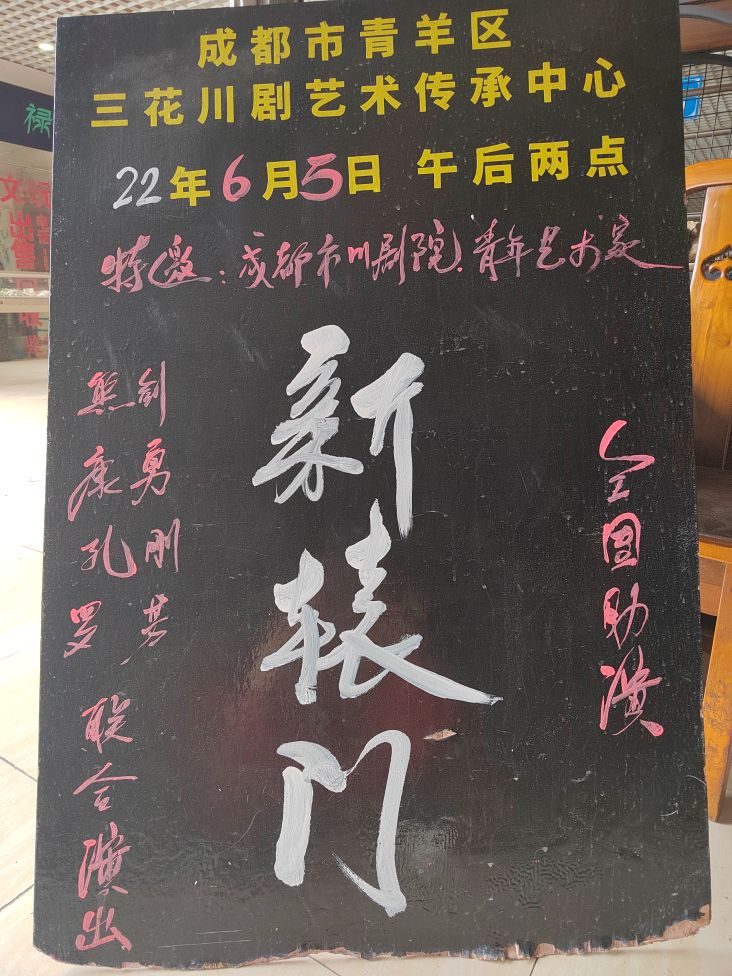 成都市青羊区
三花川剧艺术传承中心
22年6月5日 午后两点
特邀：成都市川剧院.青年艺术家
熊剑
康勇
孔刚
罗芳
联合演出
新辕门
全团助演
禄
文玩
出售